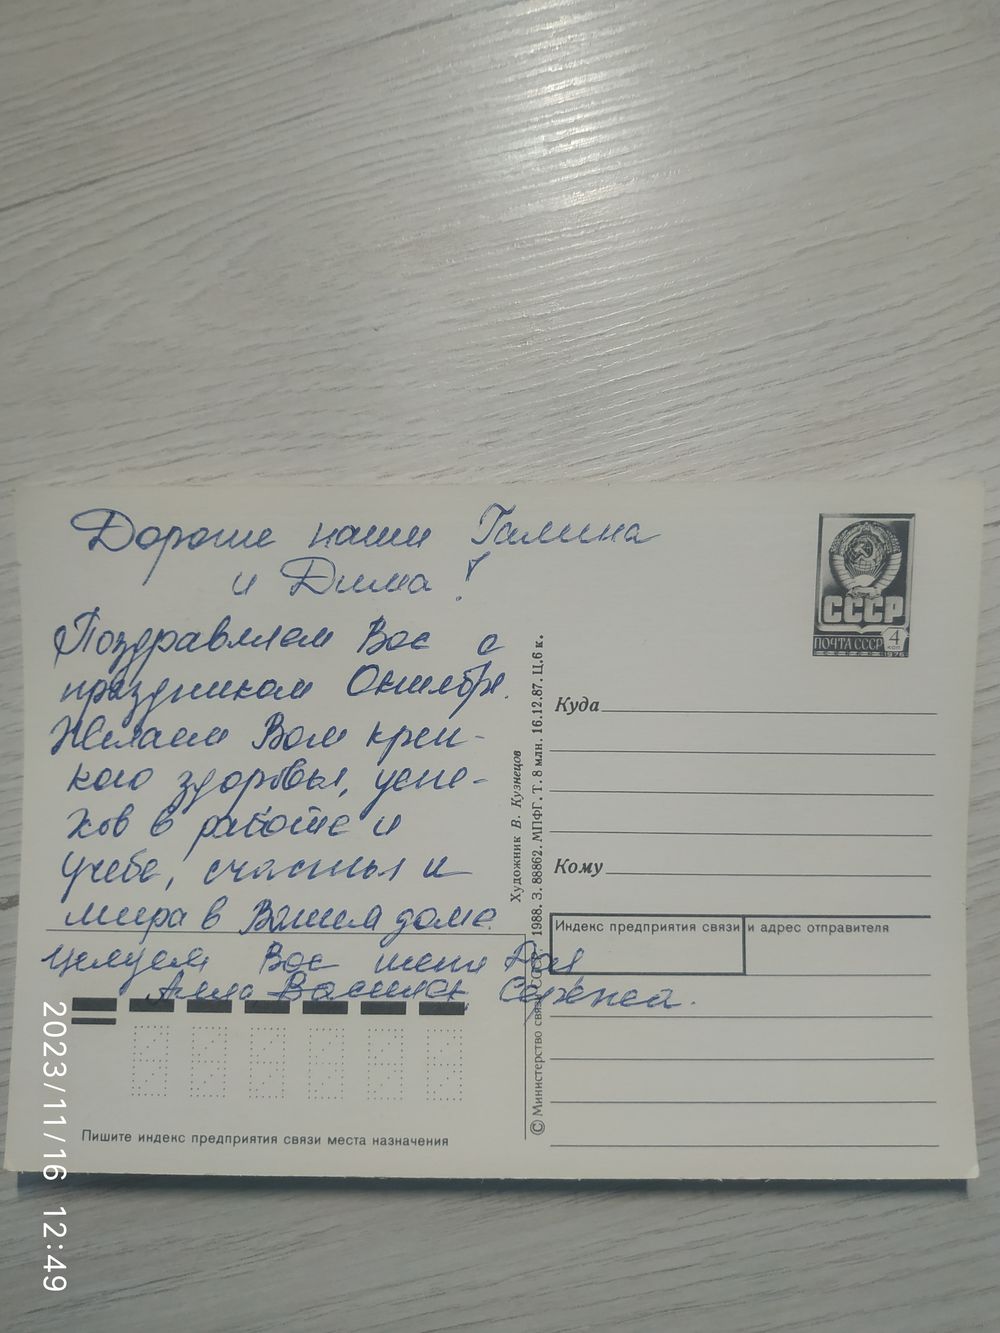 Дорогие наши Галина
и Дима!
Поздравляем Вас с
праздником Октября.
Желаем Вам креп-
кого здоровья, успе-
хов в работе и
учебе, счастья и
мира в Вашем доме.
Целуем Вас тетя Рая,
Алла Василий, Сережа.
СССР
ПОЧТА СССР 4 коп
1976
Куда
Кому
Индекс предприятия связи и адрес отправителя
Пишите индекс предприятия связи места назначения
Художник В. Кузнецов
© Министерство связи СССР. 1988. З. 88862. МПФГ. Т. 8 млн. 16.12.87. Ц. 6 к.
2023/11/16 12:49